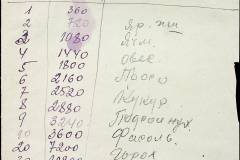 1 360
2 720 Яр. пш
3 1080 Ячм.
4 1440 Овес.
5 1800 Просо
6 2160 Кукур.
7 2520
8 2880 Фасоль.
9 3240 Горох
10 3600
20 7200